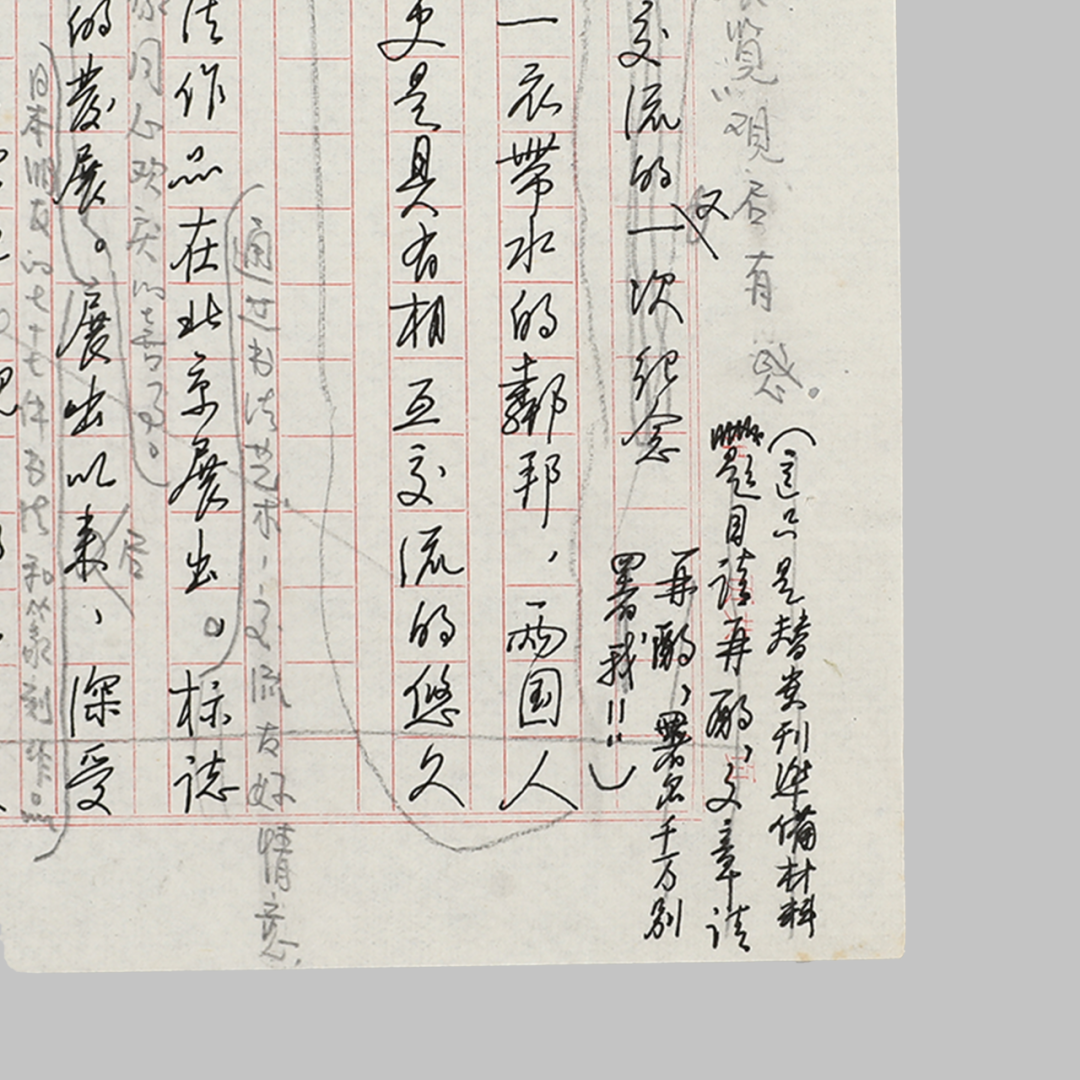 览观后有感。
（这只是替贵刊准备材料
题目请再酌，文章请
再酌，署名千万别
署我!!）
交流的又一次纪念
一衣带水的鄰邦，两国人
更是具有相互交流的悠久
通过书法艺术，交流友好情意，
法作品在北京展出。标誌
同心欢庆的喜了。
后
的發展。展出以来，深受
日本朋友的七十七件书法和篆刻作品